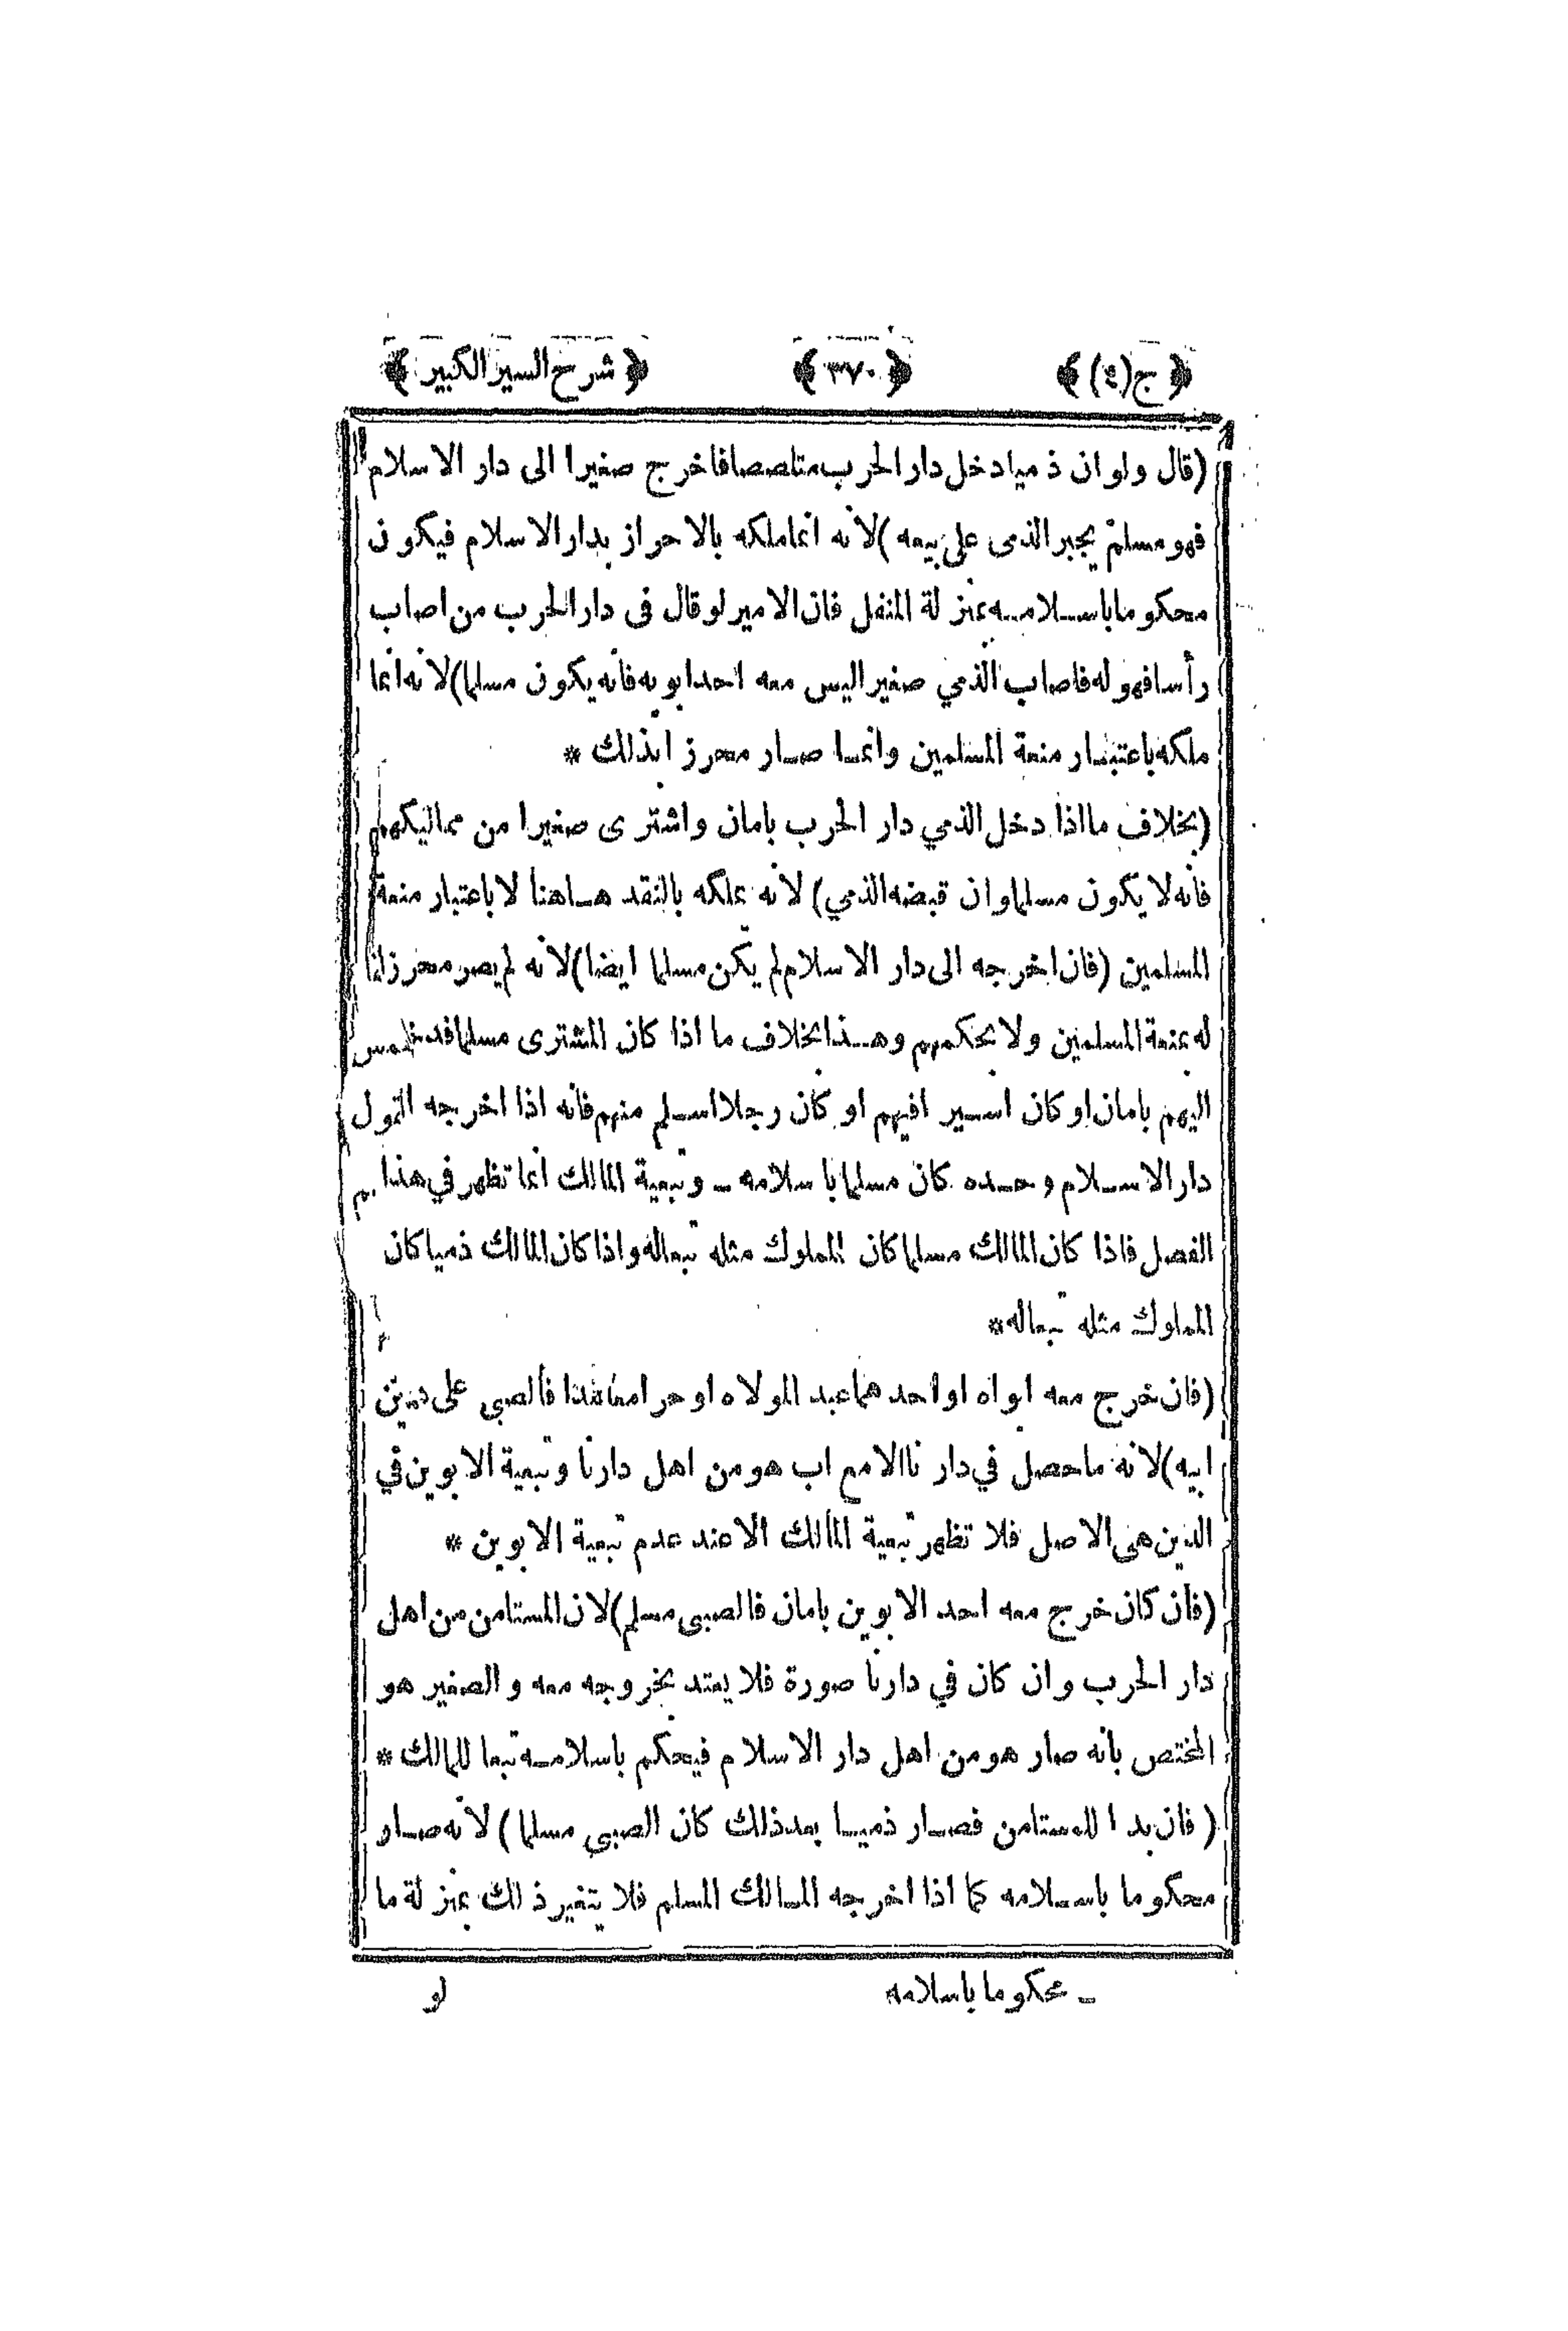 ﴿ ج (٤) ﴾ ﴿ ٣٧٠ ﴾ ﴿ شرح السير الكبير ﴾
(قال ولو ان ذميا دخل دار الحرب متلصصا فاخرج صغيرا الى دار الاسلام
فهو مسلم يجبر الذمى على بيعه) لانه انما ملكه بالاحراز بدار الاسلام فيكون
محكوما باسلامه بمنزلة المنفل فان الامير لو قال فى دار الحرب من اصاب
رأسا فهو له فاصاب الذمي صغيرا ليس معه احد ابويه فانه يكون مسلما) لانه انما
ملكه باعتبار منعة المسلمين وانما صار محرزا بذلك *
(بخلاف ما اذا دخل الذمي دار الحرب بامان واشترى صغيرا من مماليكهم
فانه لا يكون مسلما وان قبضه الذمي) لانه يملكه بالنقد هاهنا لا باعتبار منعة
المسلمين (فان اخرجه الى دار الاسلام لم يكن مسلما ايضا) لانه لم يصر محرزا
له بمنعة المسلمين ولا بحكمهم وهذا بخلاف ما اذا كان المشترى مسلما
اليهم بامان او كان اسيرا فيهم او كان رجلا اسلم منهم فانه اذا اخرجه
دار الاسلام وحده كان مسلما باسلامه ـ وتبعية المالك انما تظهر في هذا
الفصل فاذا كان المالك مسلما كان المملوك مثله تبعا له واذا كان المالك ذميا كان
المملوك مثله تبعا له *
(فان خرج معه ابواه او احدهما عبدا لمولاه او حرا معاهدا فالصبى على دين
ابيه) لانه ما حصل في دارنا الا مع اب هو من اهل دارنا وتبعية الابوين في
الدين هى الاصل فلا تظهر تبعية المالك الا عند عدم تبعية الابوين *
(فان كان خرج معه احد الابوين بامان فالصبى مسلم) لان المستامن من اهل
دار الحرب وان كان في دارنا صورة فلا يعتد بخروجه معه والصغير هو
المختص بانه صار هو من اهل دار الاسلام فيحكم باسلامه تبعا للمالك *
(فان بدا للمستامن فصار ذميا بعد ذلك كان الصبي مسلما) لانه صار
محكوما باسلامه كما اذا اخرجه المالك المسلم فلا يتغير ذلك بمنزلة ما
ـ محكوما باسلامه لو